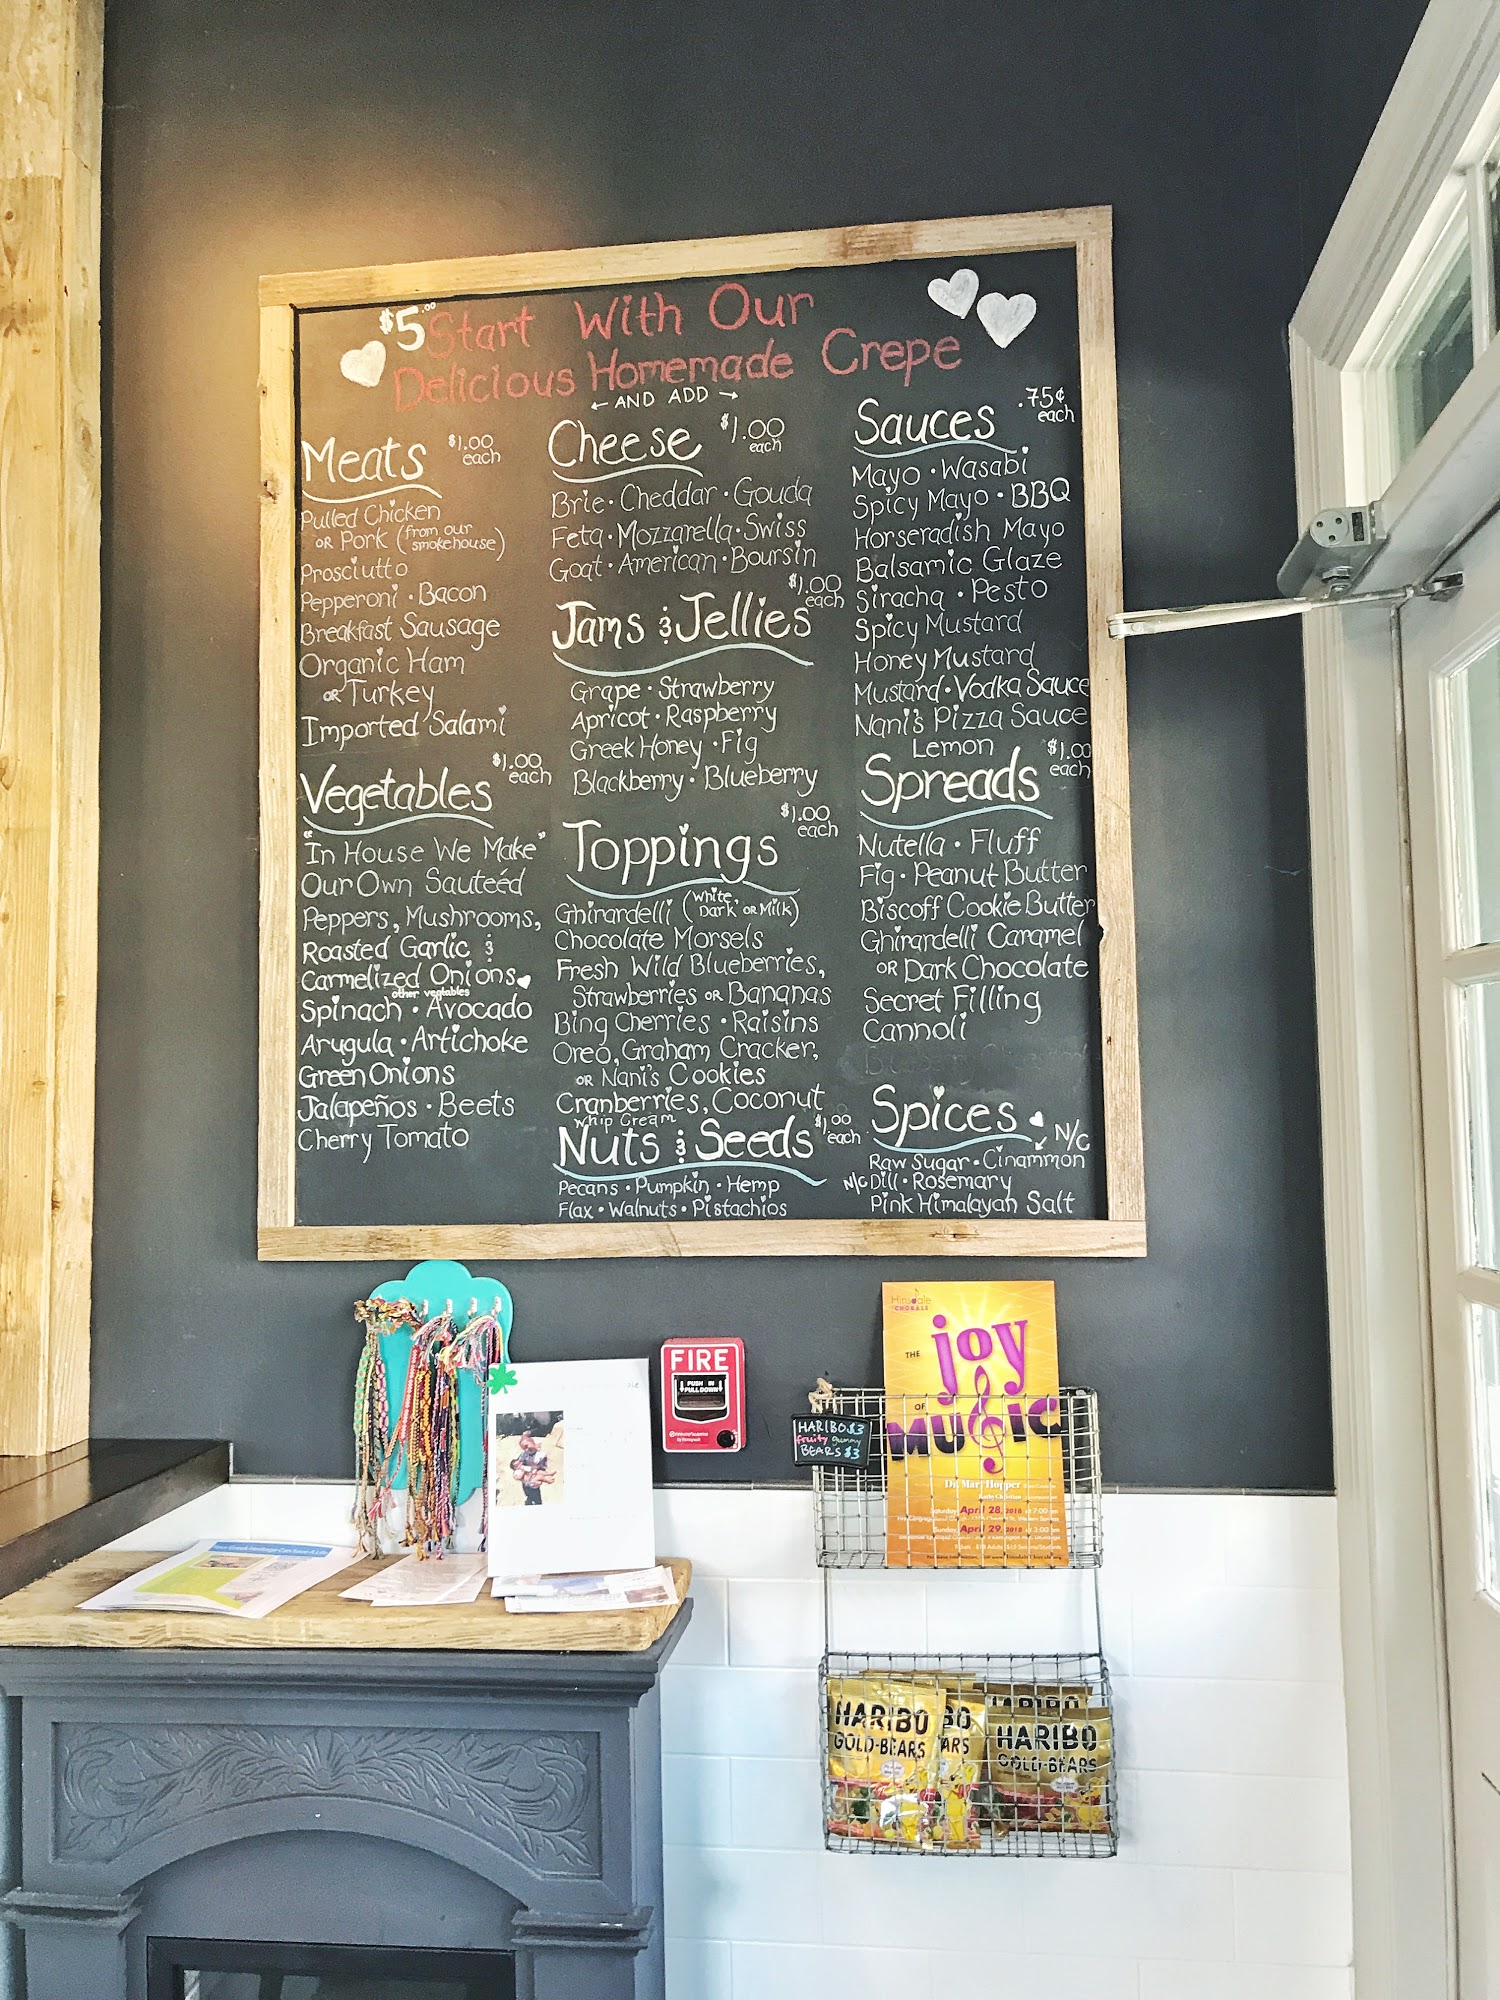 $5.00 Start With Our
Delicious Homemade Crepe
← AND ADD →
Meats $1.00 each
Pulled Chicken
OR Pork (from our smokehouse)
Prosciutto
Pepperoni · Bacon
Breakfast Sausage
Organic Ham
OR Turkey
Imported Salami
Vegetables $1.00 each
"In House We Make"
Our Own Sauteéd
Peppers, Mushrooms,
Roasted Garlic &
Carmelized Onions
other vegtables
Spinach · Avocado
Arugula · Artichoke
Green Onions
Jalapeños · Beets
Cherry Tomato
Cheese $1.00 each
Brie · Cheddar · Gouda
Feta · Mozzarella · Swiss
Goat · American · Boursin
Jams & Jellies $1.00 each
Grape · Strawberry
Apricot · Raspberry
Greek Honey · Fig
Blackberry · Blueberry
Toppings $1.00 each
Ghirardelli (White, Dark OR Milk)
Chocolate Morsels
Fresh Wild Blueberries,
Strawberries OR Bananas
Bing Cherries · Raisins
Oreo, Graham Cracker,
OR Nani's Cookies
Cranberries, Coconut
Whip Cream
Nuts & Seeds $1.00 each
Pecans · Pumpkin · Hemp
Flax · Walnuts · Pistachios
Sauces .75¢ each
Mayo · Wasabi
Spicy Mayo · BBQ
Horseradish Mayo
Balsamic Glaze
Siracha · Pesto
Spicy Mustard
Honey Mustard
Mustard · Vodka Sauce
Nani's Pizza Sauce
Lemon
Spreads $1.00 each
Nutella · Fluff
Fig · Peanut Butter
Biscoff Cookie Butter
Ghirardelli Caramel
OR Dark Chocolate
Secret Filling
Cannoli
Spices N/C
Raw Sugar · Cinammon
N/C Dill · Rosemary
Pink Himalayan Salt
FIRE
PUSH IN
PULL DOWN
HARIBO $3
fruity gummy
BEARS $3
Hinsdale
CHORALE
THE joy
OF
MUSIC
Saturday, April 28, 2018 at 7:00 pm
Sunday, April 29, 2018 at 3:00 pm
HARIBO
GOLD-BEARS
BO
ARS
HARIBO
HARIBO
GOLD-BEARS